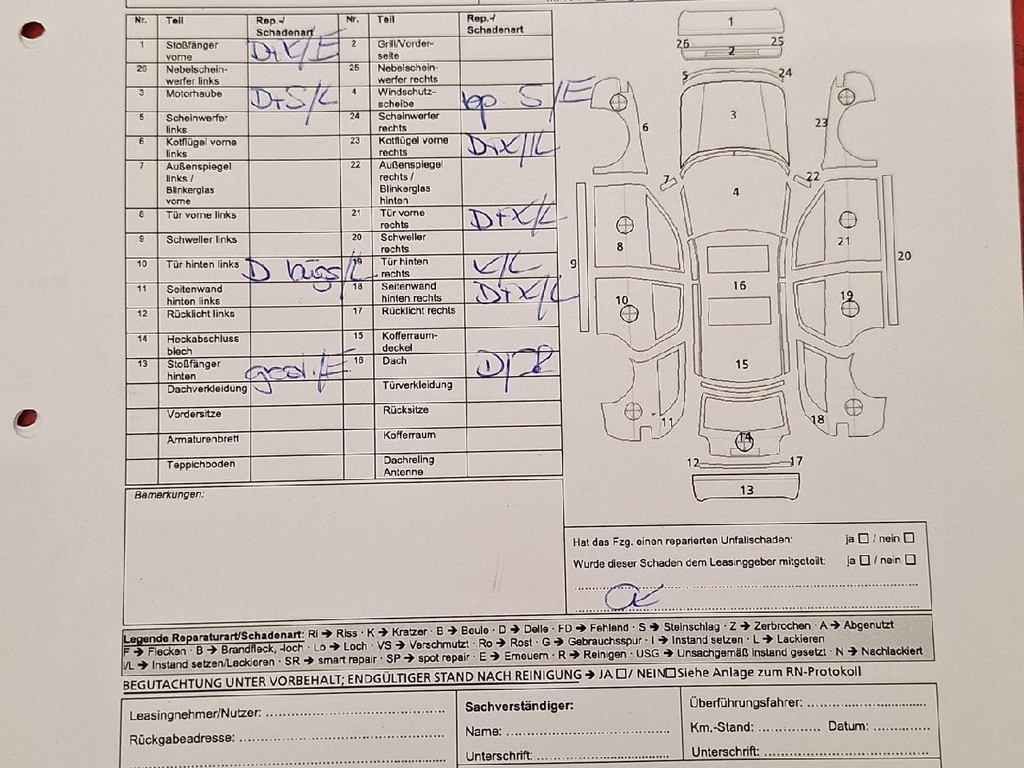 Nr. Teil Rep.-/ Schadenart Nr. Teil Rep.-/ Schadenart
1 Stoßfänger vorne D+K/E 2 Grill/Vorder-seite
26 Nebelschein-werfer links 25 Nebelschein-werfer rechts
3 Motorhaube D+S/L 4 Windschutz-scheibe S/E
5 Scheinwerfer links 24 Scheinwerfer rechts
6 Kotflügel vorne links 23 Kotflügel vorne rechts D+K/L
7 Außenspiegel links / Blinkerglas vorne 22 Außenspiegel rechts / Blinkerglas hinten
8 Tür vorne links 21 Tür vorne rechts D+K/L
9 Schweller links 20 Schweller rechts
10 Tür hinten links D /L 19 Tür hinten rechts K/L
11 Seitenwand hinten links 18 Seitenwand hinten rechts D+K/L
12 Rücklicht links 17 Rücklicht rechts
14 Heckabschluss blech 15 Kofferraum-deckel
13 Stoßfänger hinten /E 16 Dach
Dachverkleidung Türverkleidung
Vordersitze Rücksitze
Armaturenbrett Kofferraum
Teppichboden Dachreling Antenne
Bemerkungen:
1
26 2 25
5 24
3
6 23
7 22
4
8 21
9 20
16
10 19
15
11 18
14
12 17
13
Hat das Fzg. einen reparierten Unfallschaden: ja ☐ / nein ☐
Wurde dieser Schaden dem Leasinggeber mitgeteilt: ja ☐ / nein ☐
Legende Reparaturart/Schadenart: Ri → Riss · K → Kratzer · B → Beule · D → Delle · FD → Fehlend · S → Steinschlag · Z → Zerbrochen · A → Abgenutzt
F → Flecken · B → Brandfleck, -loch · Lo → Loch · VS → Verschmutzt · Ro → Rost · G → Gebrauchsspur · I → Instand setzen · L → Lackieren
I/L → Instand setzen/Lackieren · SR → smart repair · SP → spot repair · E → Erneuern · R → Reinigen · USG → Unsachgemäß Instand gesetzt · N → Nachlackiert
BEGUTACHTUNG UNTER VORBEHALT; ENDGÜLTIGER STAND NACH REINIGUNG → JA ☐ / NEIN ☐ Siehe Anlage zum RN-Protokoll
Leasingnehmer/Nutzer:
Rückgabeadresse:
Sachverständiger:
Name:
Unterschrift:
Überführungsfahrer:
Km.-Stand: Datum:
Unterschrift: